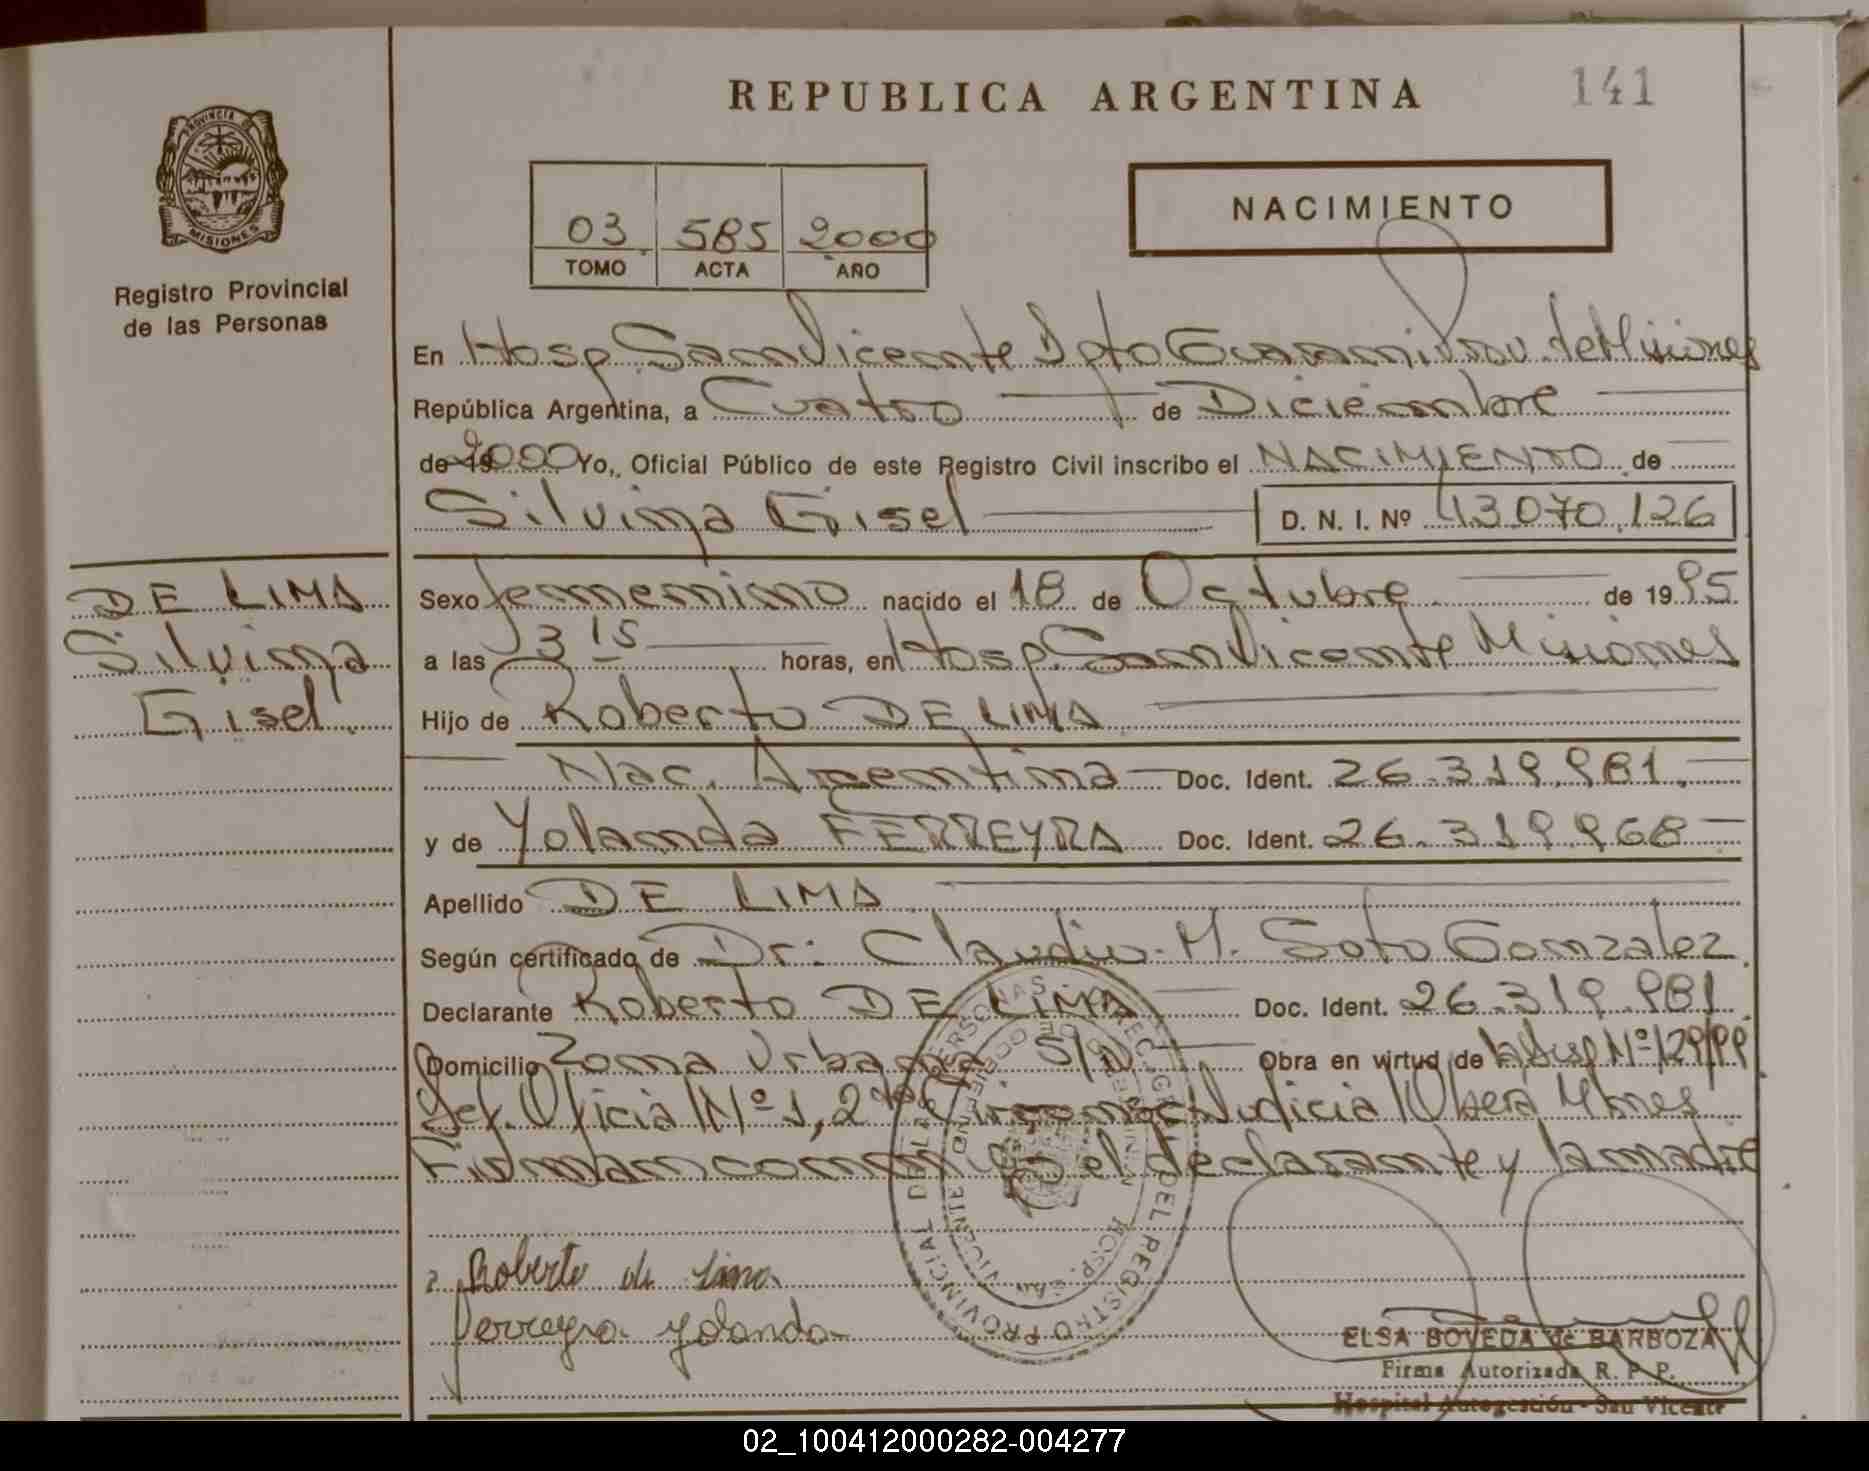 REPUBLICA ARGENTINA
141
PROVINCIA DE
MISIONES
Registro Provincial
de las Personas
03 585 2000
TOMO ACTA AÑO
NACIMIENTO
En Hosp San Vicente Dpto Guarani Prov. de Misiones
República Argentina, a Cuatro de Diciembre
de 19 2000 Yo, Oficial Público de este Registro Civil inscribo el NACIMIENTO de
Silvina Gisel D. N. I. Nº 43.070.126
DE LIMA
Silvina
Gisel
Sexo femenino nacido el 18 de Octubre de 1995
a las 3 15 horas, en Hosp. San Vicente Misiones
Hijo de Roberto DE LIMA
Nac. Argentina Doc. Ident. 26.319.981.
y de Yolanda FERREYRA Doc. Ident. 26.319.968
Apellido DE LIMA
Según certificado de Dr: Claudio M. Soto Gonzalez
Declarante Roberto DE LIMA Doc. Ident. 26.319.981
Domicilio Zona Urbana S/N Obra en virtud de la Disp Nº 129/99
Def. Oficial Nº 1, 2da Circunsc Judicial Obera Mnes
Firman conmigo el declarante y la madre
Roberto de Lima
Ferreyra yolanda
REGISTRO PROVINCIAL DE LAS PERSONAS
HOSP. SAN VICENTE
ELSA BOVEDA de BARBOZA
Firma Autorizada R. P. P.
Hospital Autogestión - San Vicente
02_100412000282-004277